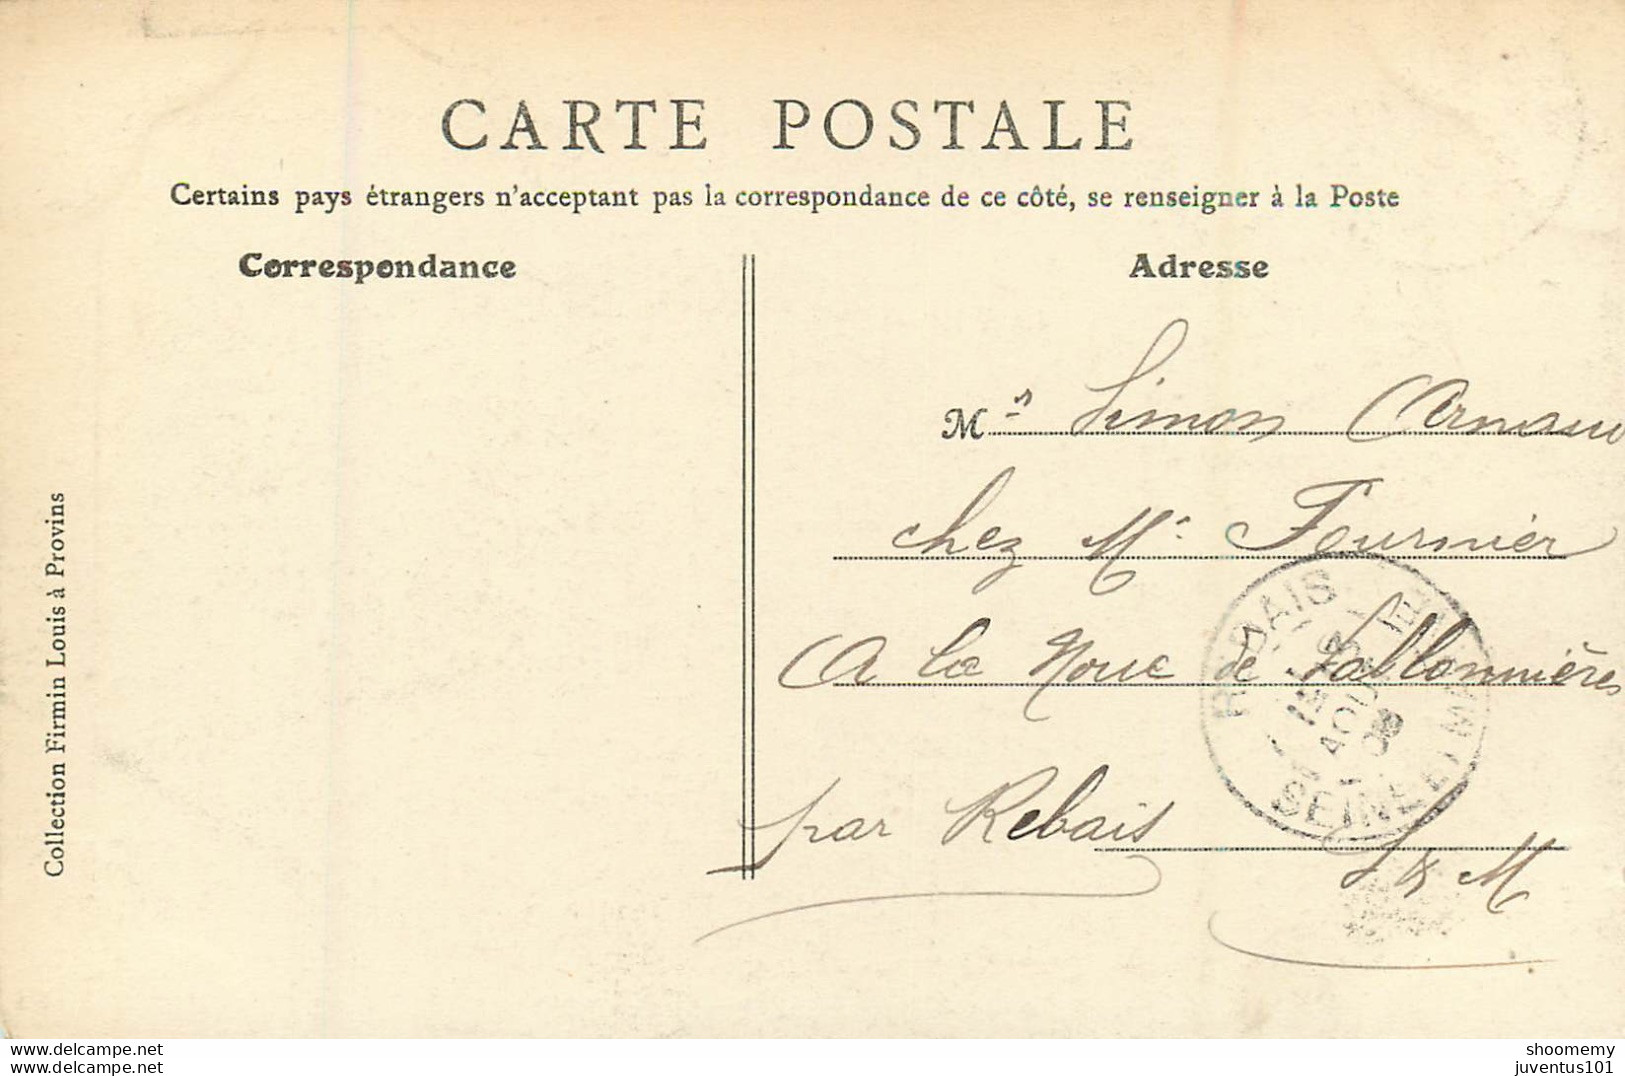 CARTE POSTALE
Certains pays étrangers n'acceptant pas la correspondance de ce côté, se renseigner à la Poste
Correspondance
Adresse
Mr Simon Arnaud
chez Mr Fournier
A la Noue de Sablonnières
par Rebais
S & M
REBAIS
AOUT
SEINE ET MARNE
Collection Firmin Louis à Provins
www.delcampe.net
www.delcampe.net
shoomemy
juventus101